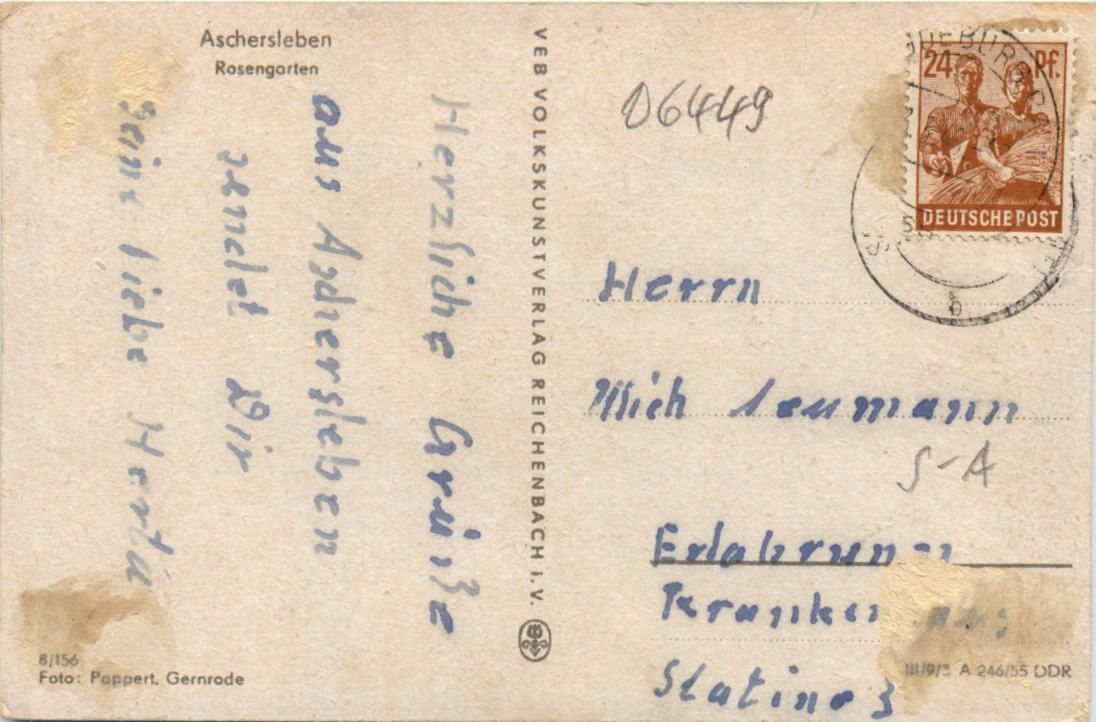 Aschersleben
Rosengarten
Herzliche Grüße
aus Aschersleben
sendet Dir
Deine liebe Herta
8/156
Foto: Pappert, Gernrode
VEB VOLKSKUNSTVERLAG REICHENBACH i. V.
06449
24 Pf.
DEUTSCHE POST
b
Herrn
Mich Neumann
S-A
Erlabrunn
III/9/3 A 246/55 DDR